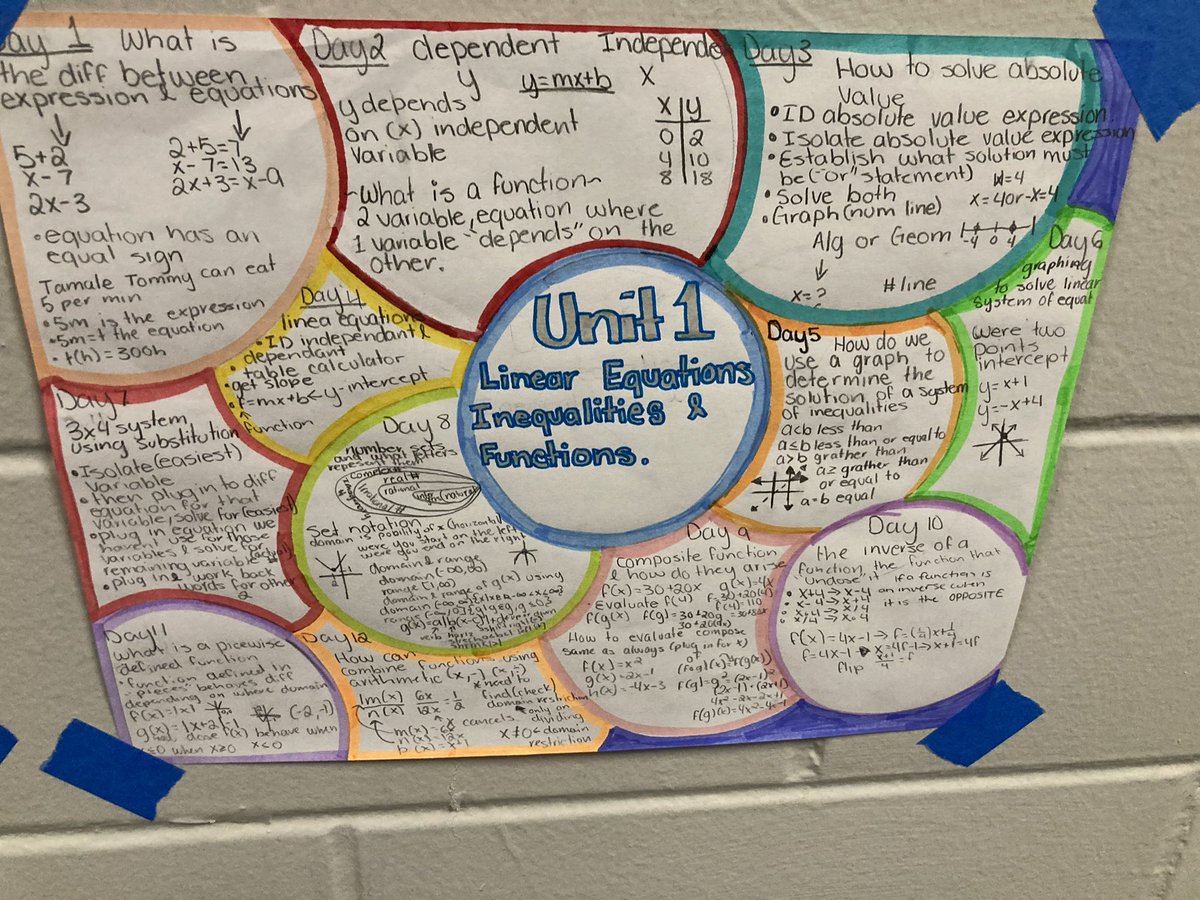 Day 1 What is
the diff between
expression & equations
5+2
x-7
2x-3
2+5=7
x-7=13
2x+3=x-9
•equation has an
equal sign
Tamale Tommy can eat
5 per min
•5m is the expression
•5m=t the equation
•t(h)=300h
Day2 dependent Independe
y y=mx+b X
y depends
on (x) independent
variable
X y
0 2
4 10
8 18
~What is a function~
2 variable, equation where
1 variable "depends" on the
other.
Day3 How to solve absolute
Value
•ID absolute value expression.
•Isolate absolute value expression
•Establish what solution must
be("or" statement)
•Solve both x=4or-x=4
•Graph(num line)
-4 0 4
Alg or Geom
x=? #line
Day 4
linea equations
•ID independant &
dependant
•table calculator
•get slope
•f=mx+b←y-intercept
function
Unit 1
Linear Equations
Inequalities &
Functions.
Day5 How do we
use a graph to
determine the
solution of a system
of inequalities
a<b less than
a≤b less than or equal to
a>b grather than
a≥ grather than
or equal to
a=b equal
Day 6
graphing
to solve linear
system of equat
were two
points
intercept
y=x+1
y=-x+4
Day 7
3x4 system
using substitution
•Isolate(easiest)
variable
•then plug in to diff
equation for that
variable, solve for (easiest)
•plug in equation we
have & use for those
variables & solve for
remaining variable
•plug in & work back
words for other
2
Day 8
number sets
and what letters
represent them
complex#
real#
rational
Irrational#
Set notation
domain is pobility of x (horizontal)
were you start on the left
were do u end on the right
domain & range
domain (-∞,∞)
range [1,∞)
domain & range of g(x) using
Day 9
composite function
& how do they arise
f(x)=30+20x g(x)=4x
Evaluate f(4) f=30+20(4)
f(4)=110
f(g(x) f(g)=30+20g
How to evaluate compose
same as always (plug in for x)
f(x)=x²
g(x)=2x-1
h(x)=-4x-3
f(g)=g² (2x-1)²
(2x-1)•(2x-1)
4x²-2x-2x+1
f(g)(x)=4x²-4x-1
Day 10
the inverse of a
function, the function that
"undose" it if a function is
an inverse when
it is the OPPOSITE
•x+4 → x-4
•x-4 → x+4
f(x)=4x-1
f=4x-1
flip
Day 11
what is a picewise
defined function
•function defined in
"pieces" behaves diff
depending on where domain
f(x)=|x| (-2,-1)
g(x)=|x+2|-1
dose f(x) behave when
x≤0 when x≥0 x≤0
Day 12
How can
combine functions using
arithmetic (x,-) (x,÷)
m(x) 6x = 1
n(x) 12x 2
x need to
find(check)
domain restriction
only on
dividing
x cancels
m(x)=6x
n(x)=12x
p(x)=x+1
x≠0←domain
restriction